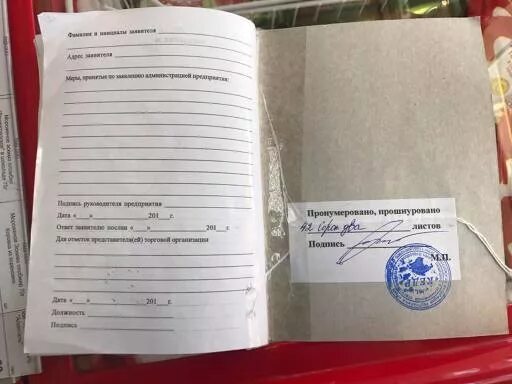 Фамилия и инициалы заявителя
Адрес заявителя
Меры, принятые по заявлению администрацией предприятия:
Подпись руководителя предприятия
Дата «___» 201__г.
Ответ заявителю послан «___» 201__г.
Для отметок представителя(ей) торговой организации
Дата «___» 201__г.
Должность
Подпись
Пронумеровано, прошнуровано
42 (сорок два листов
Подпись
М.П.
КЕДР